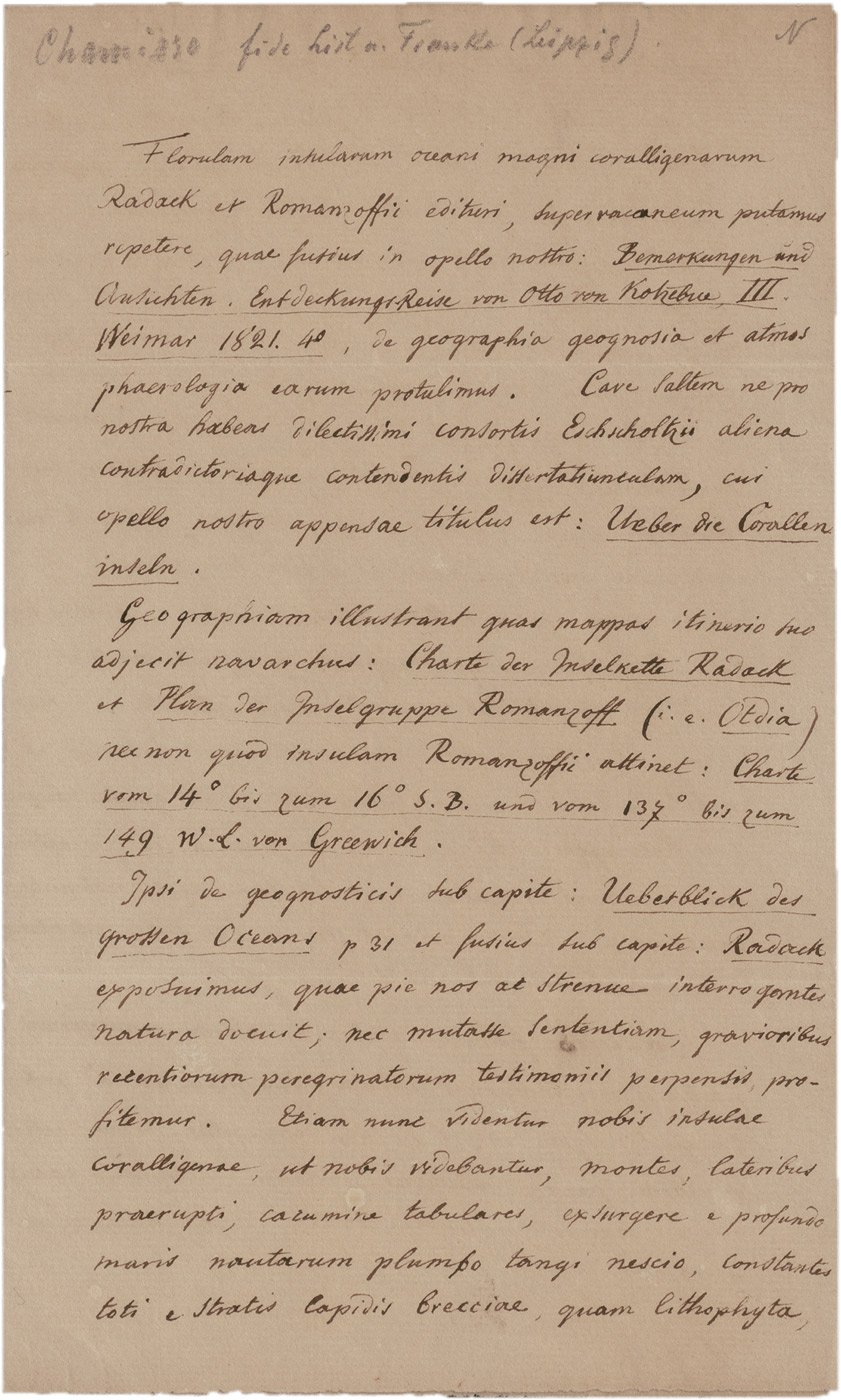 Chamisso fide hist a. Franke (Leipzig) N
Florulam insularum oceani magni coralligenarum
Radack et Romanzoffii edituri, supervacaneum putamus
repetere, quae fusius in opello nostro: Bemerkungen und
Ansichten. Entdeckungs-Reise von Otto von Kotzebue III.
Weimar 1821. 4º, de geographia geognosia et atmos
phaerologia earum protulimus. Cave saltem ne pro
nostra habeas dilectissimi consortis Eschscholtzii aliena
contradictoriaque contendentis dissertatiunculam, cui
opello nostro appensae titulus est: Ueber die Corallen
inseln.
Geographiam illustrant quas mappas itinerio suo
adjecit navarchus: Charte der Inselkette Radack
et Plan der Inselgruppe Romanzoff (i. e. Otdia)
nec non quod insulam Romanzoffii attinet: Charte
vom 14° bis zum 16° S. B. und vom 137° bis zum
149 W. L. von Greewich.
Ipsi de geognosticis sub capite: Ueberblick des
grossen Oceans p 31 et fusius sub capite: Radack
exposuimus, quae pie nos at strenue interrogantes
natura docuit; nec mutasse sententiam, gravioribus
recentiorum peregrinatorum testimoniis perpensis, pro-
fitemur. Etiam nunc videntur nobis insulae
coralligenae, ut nobis videbantur, montes, lateribus
praerupti, cacumine tabulares, exsurgere e profundo
maris nautarum plumbo tangi nescio, constantes
toti e stratis lapidis brecciae, quam lithophyta,